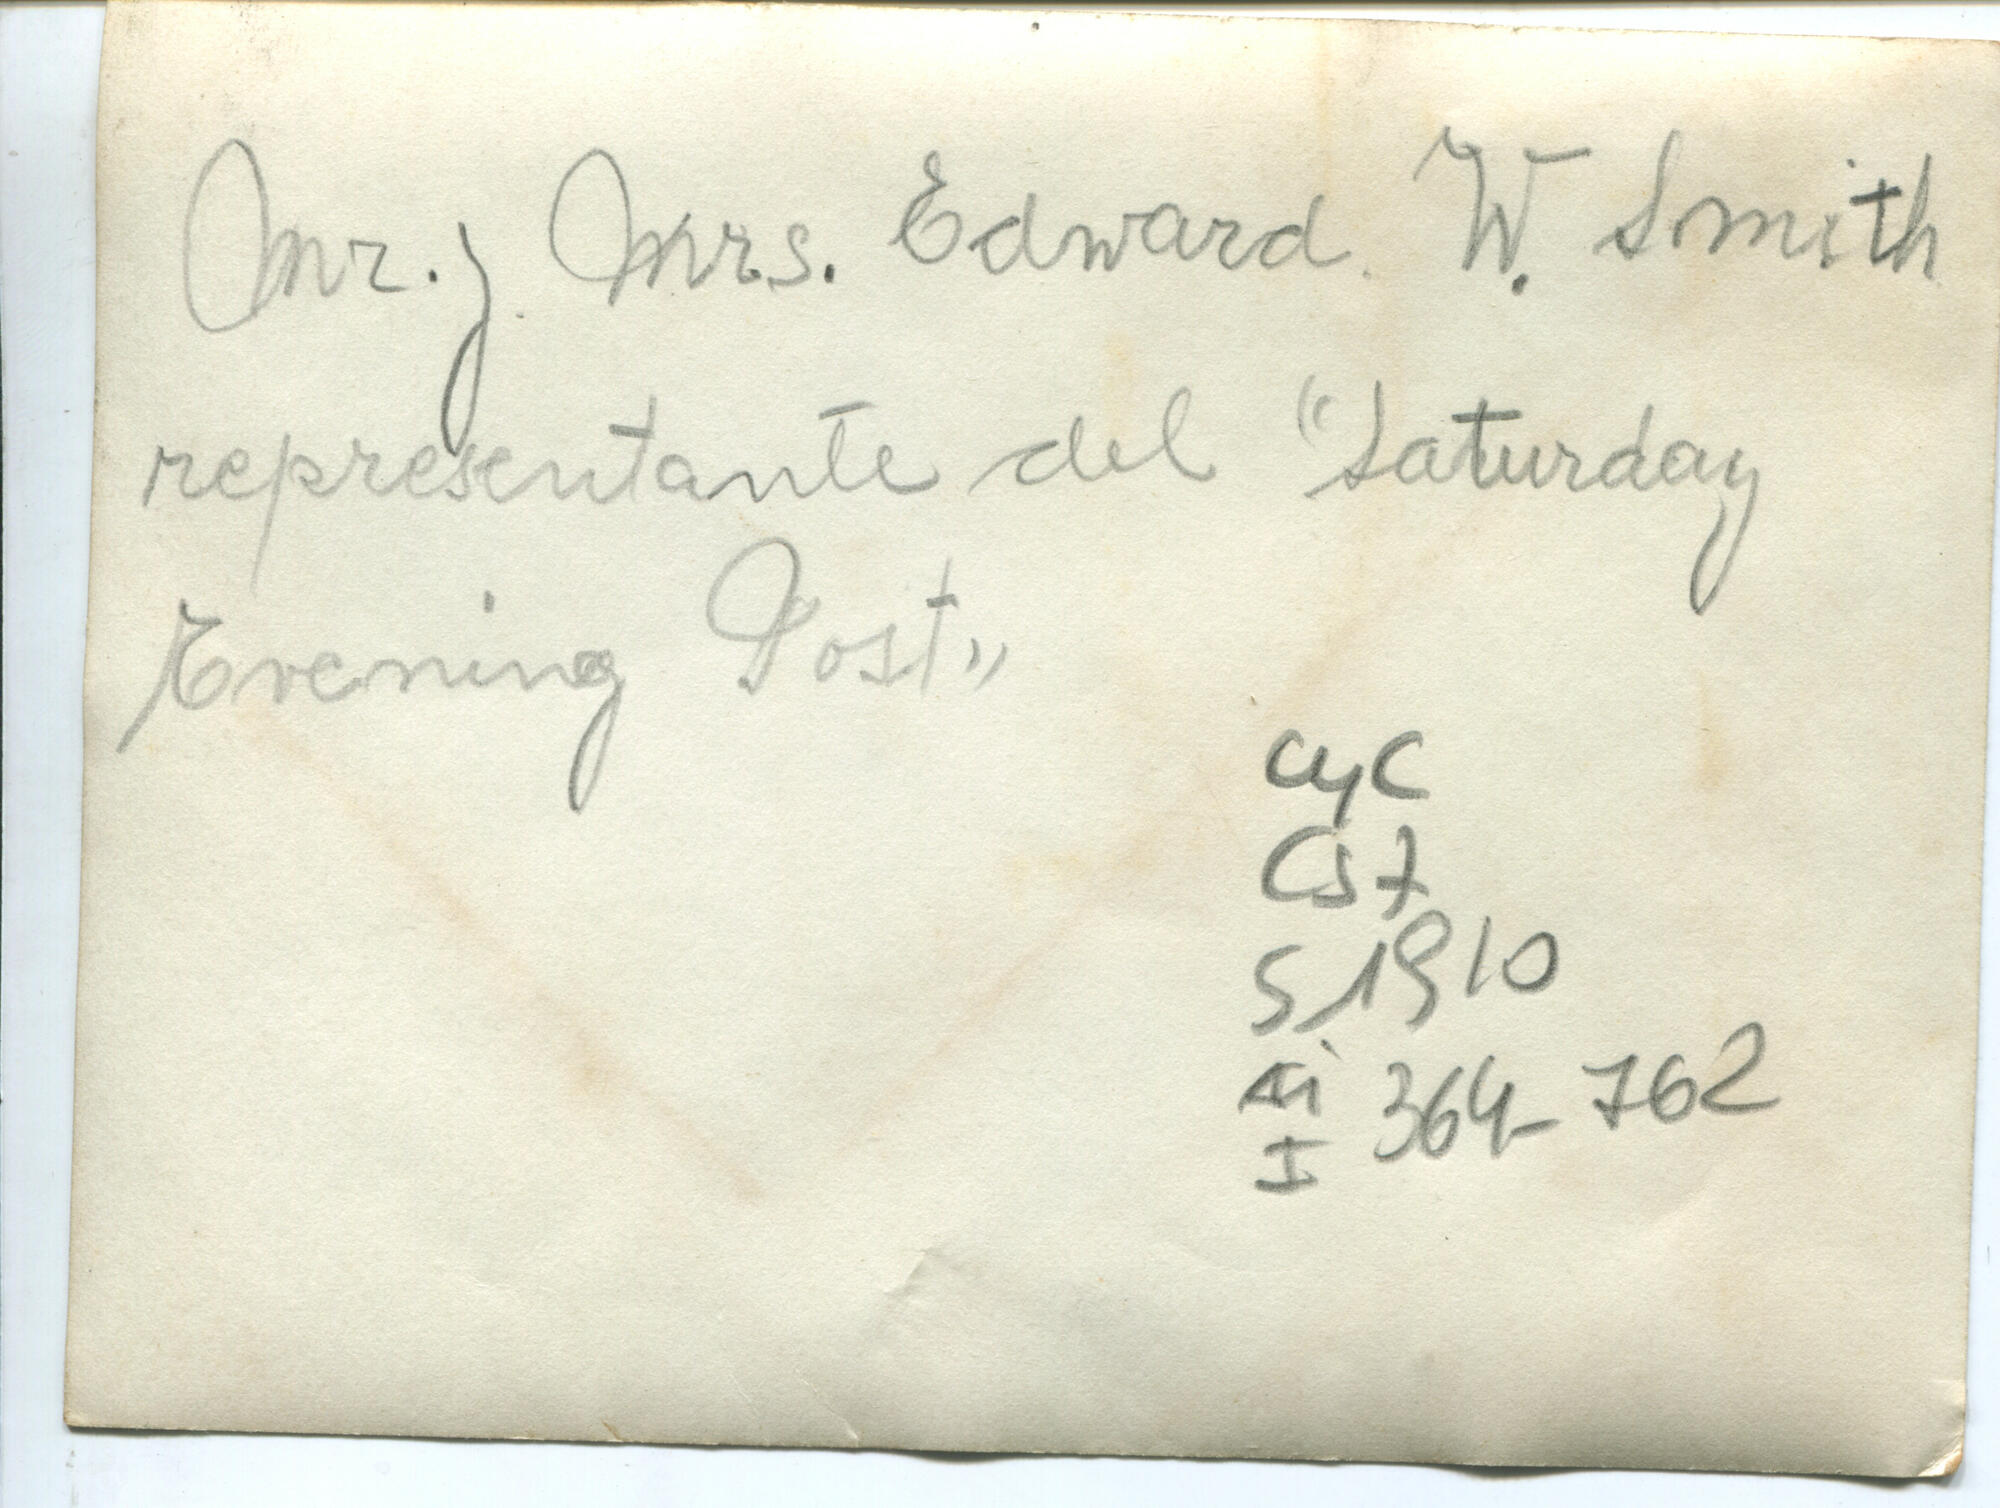 Mr. y Mrs. Edward W. Smith
representante del "Saturday
Evening Post"
CyC
Cs7
S 1910
364-762
I